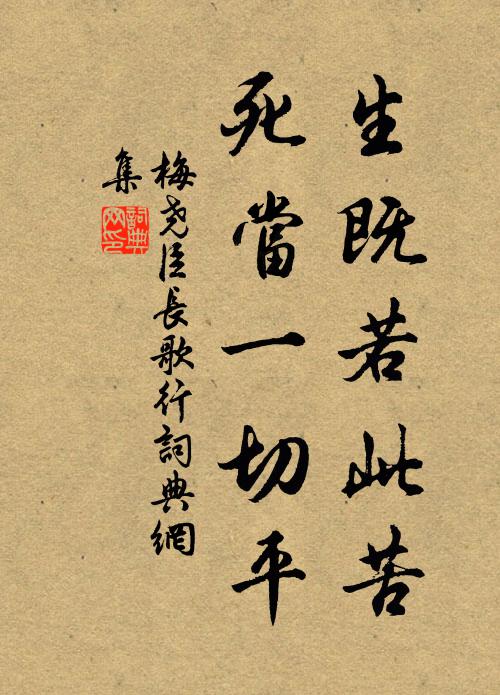 生既若此苦
死當一切平
梅堯臣長歌行詞典網
集
詞典
网印